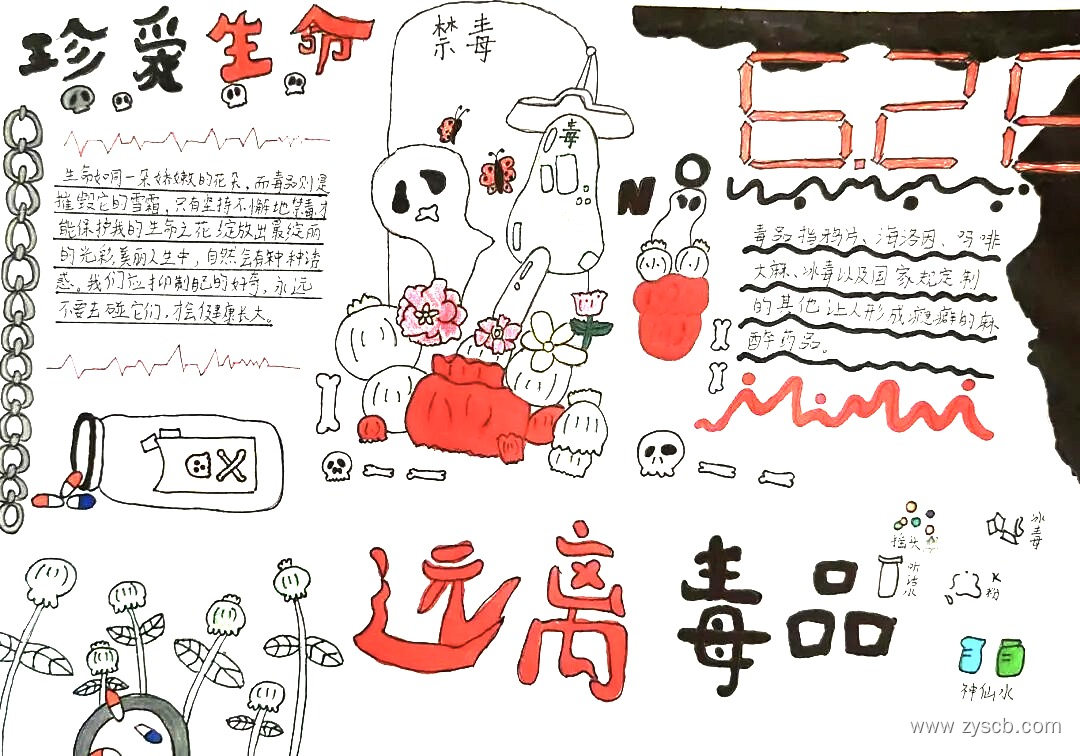 珍爱生命
禁毒
毒
6.26
NO
生命如同一朵娇嫩的花朵,而毒品则是
摧毁它的雪霜,只有坚持不懈地禁毒才
能保护我的生命之花,绽放出最绽丽
的光彩,美丽人生中,自然会有种种诱
惑。我们应抑制自己的好奇,永远
不要去碰它们,才会健康长大。
毒品指鸦片、海洛因、吗啡
大麻、冰毒以及国家规定制
的其他让人形成瘾癖的麻
醉药品。
远离毒品
摇头
冰毒
听话水
K粉
神仙水
www.zyscb.com